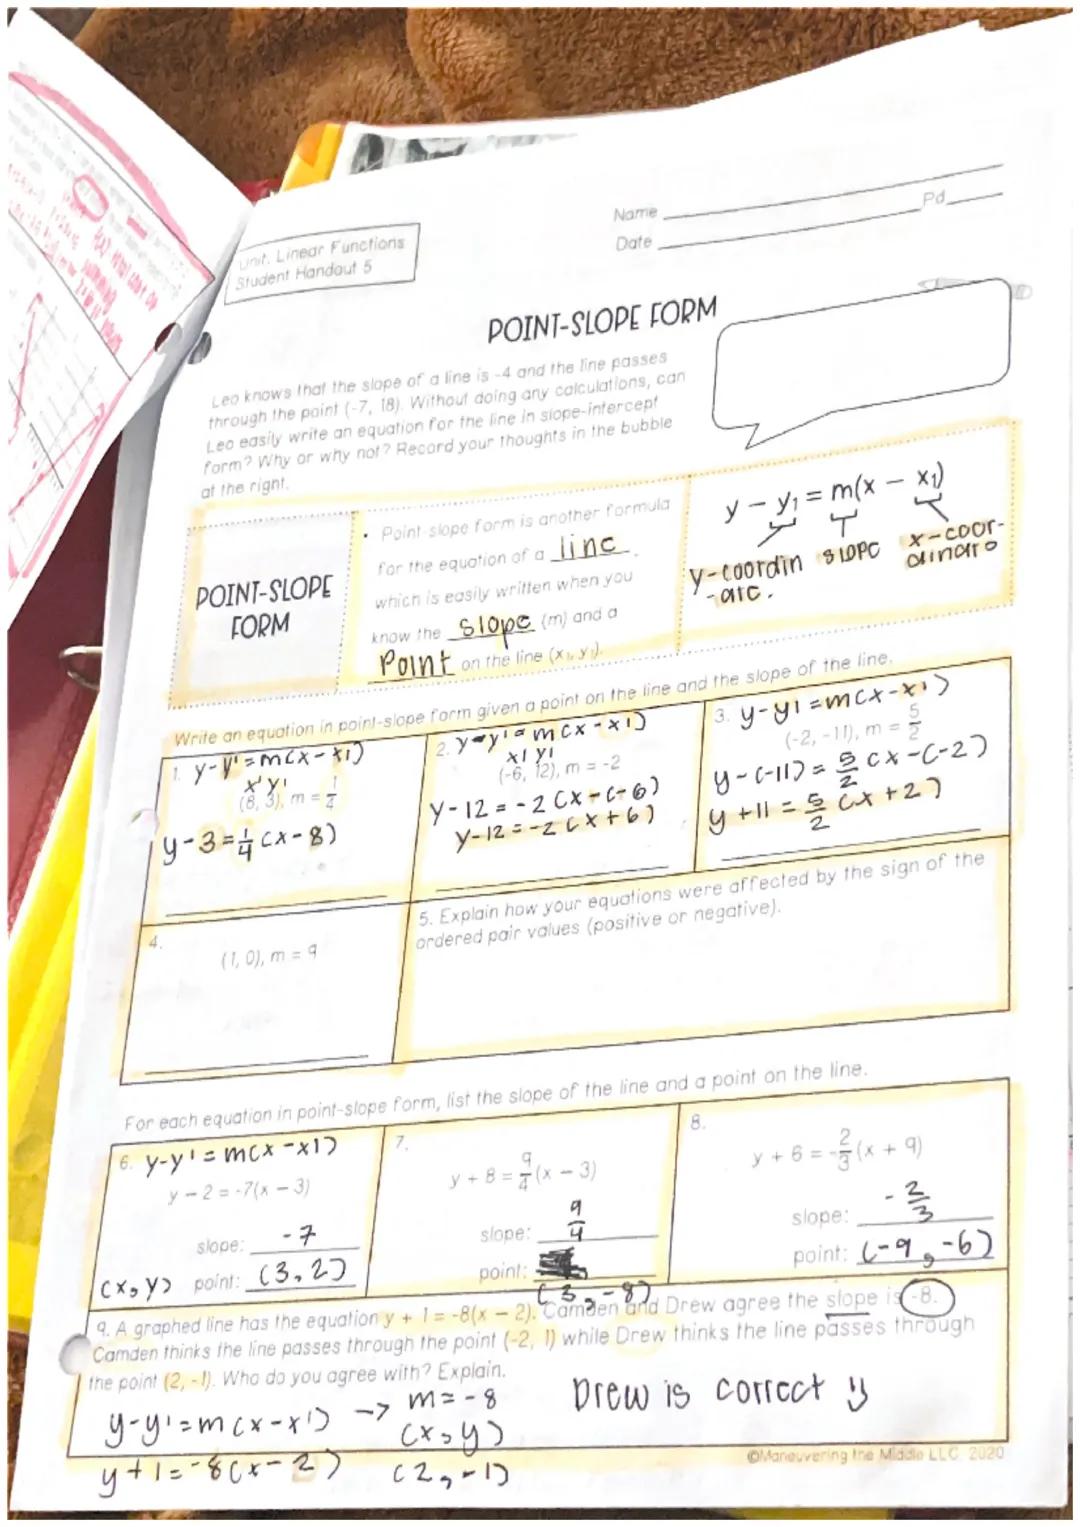 Unit: Linear Functions
Student Handout 5
Name
Pd
Date
POINT-SLOPE FORM
Leo knows that the slope of a line is -4 and the line passes
through the point (-7, 18). Without doing any calculations, can
Leo easily write an equation for the line in slope-intercept
form? Why or why not? Record your thoughts in the bubble
at the right.
POINT-SLOPE
FORM
• Point-slope form is another formula
for the equation of a line
which is easily written when you
know the slope (m) and a
Point on the line (x₁, y₁).
y - y₁ = m(x - x₁)
y-coordin
-atc.
slope
x-coor-
dinate
Write an equation in point-slope form given a point on the line and the slope of the line.
1. y-y1=m(x-x1)
x1 y1
(8, 3), m = 1/4
y-3=1/4(x-8)
2. y-y1=m(x-x1)
x1 y1
(-6, 12), m = -2
y-12=-2(x-(-6)
y-12=-2(x+6)
3. y-y1=m(x-x1)
(-2, -11), m = 5/2
y-(-11)=5/2(x-(-2)
y+11=5/2(x+2)
4.
(1, 0), m = 9
5. Explain how your equations were affected by the sign of the
ordered pair values (positive or negative).
For each equation in point-slope form, list the slope of the line and a point on the line.
6. y-y1=m(x-x1)
y - 2 = -7(x - 3)
slope: -7
(x,y) point: (3,2)
7.
y + 8 = 9/4(x - 3)
slope: 9/4
point:
(3,-8)
8.
y + 6 = -2/3(x + 9)
slope: -2/3
point: (-9,-6)
9. A graphed line has the equation y + 1 = -8(x - 2). Camden and Drew agree the slope is -8.
Camden thinks the line passes through the point (-2, 1) while Drew thinks the line passes through
the point (2, -1). Who do you agree with? Explain.
y-y1=m(x-x1) -> m=-8
(x,y)
y+1=-8(x-2) (2,-1)
Drew is correct :)
©Maneuvering the Middle LLC, 2020